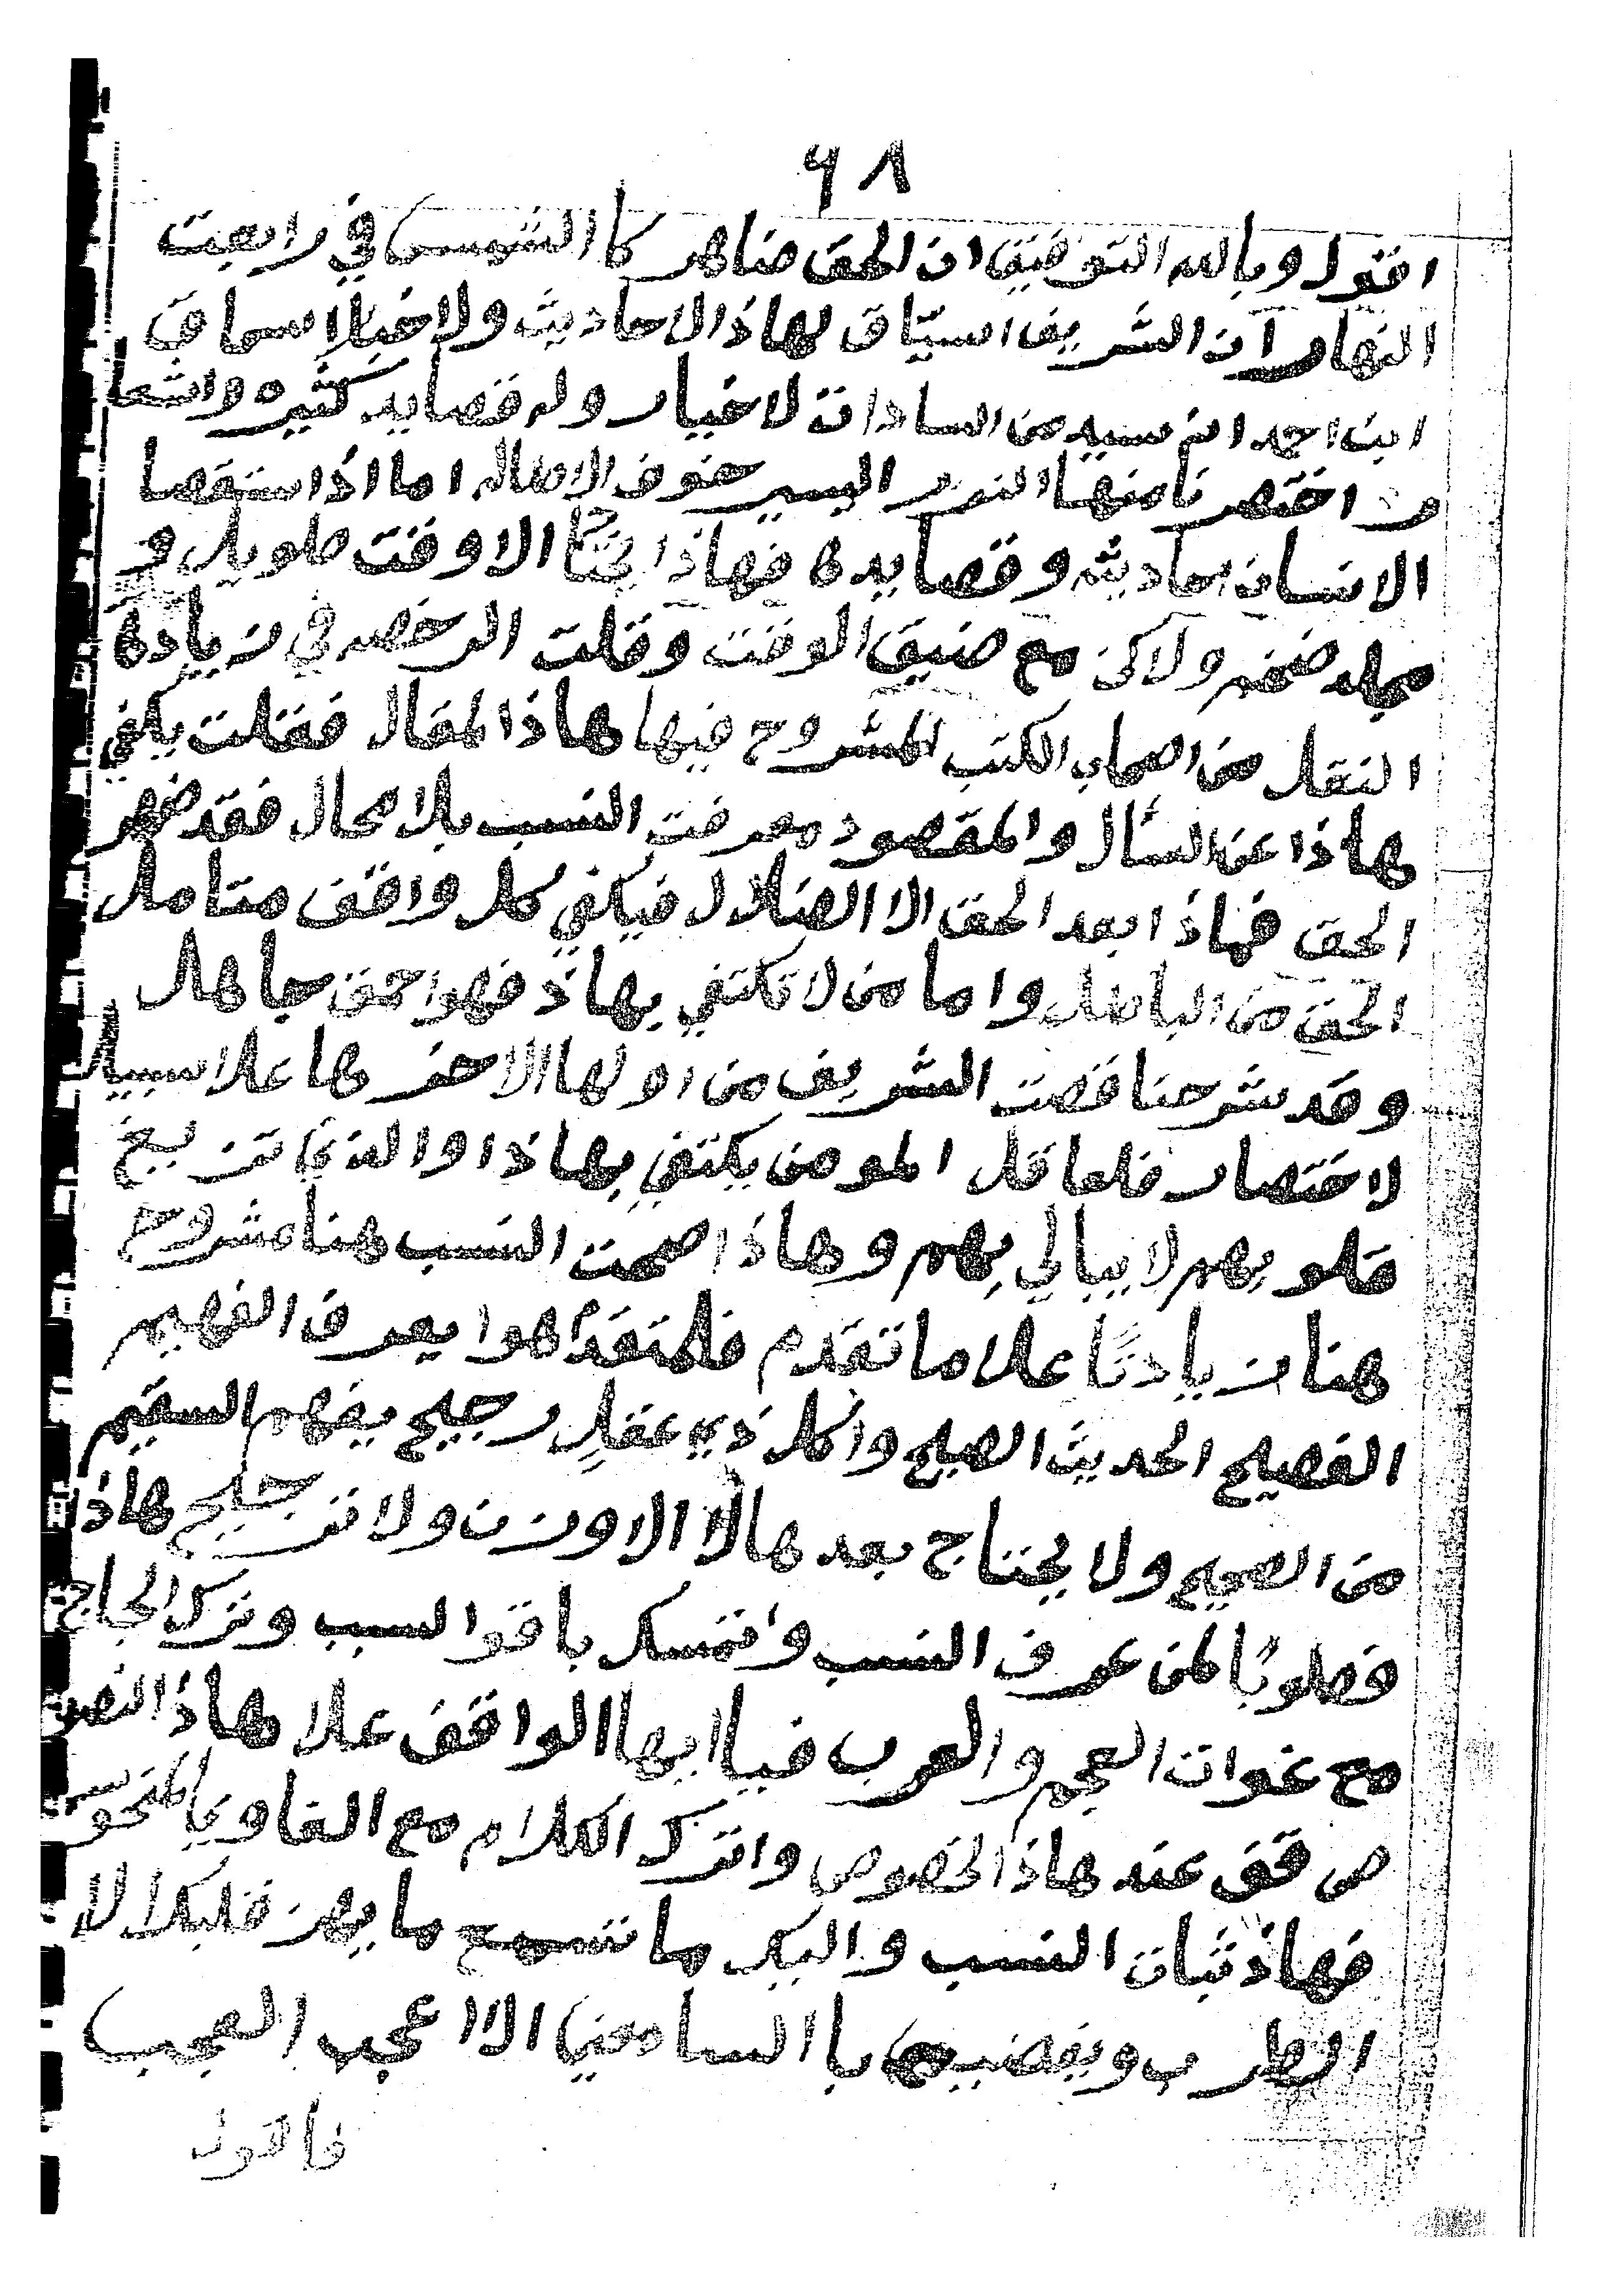 ٩٨
اقول وبالله التوفيق ان الحق ضاهر كا الشمس في رابعت
النهار ان الشريف السيّاق لهاذا الاحاديث ولاخبلا سماق
ابن احمد انه سيد من السادات لاخيار وله قصايد كثيره واشعا
ر اختصرنا منها النزر اليسير خوف الاطاله اما اذا ستقصا
الانسان احاديثه وقصايدها فهاذا يحتاج الا وقت طويل و
مجلد ضخم ولاكن مع ضيق الوقت وقلت الرخصه في زيادة
النقل من اصحاب الكتب المشروح فيها هاذا المقال فقلت يكفي
هاذا عن السئال والمقصود معرفت النسب بلا محال فقد ضهر
الحق فماذا بعد الحق الا الضلال فيكفي كل واقف متامل
الحق من الباطل واما من لا تكتفي بهاذ فهوا حمق جاهل
وقد شرحنا قصت الشريف من اولها الا اخرها علا سبيل
لاختصار فلعاقل المومن يكتفي بهاذا والذي تزيغ
قلوبهم لا يبالي بهم وهاذا صحت النسب هنا مشروح
هنا زيادتًا علا ما تقدم فلمتقدم هوا يعرف الفهيم
الفصيح الحديث الصحيح واكل ذي عقلٍ رجيح يفهم السقيم
من الصحيح ولا يحتاج بعدها لا الا وزن ولا ترجيح هاذا
فطوبًا لمن عرف النسب واتمسك باقوا السبب وترك الجاج
مع غوات العجم والعرب فيا ايها الواقف علا هاذا النصو
ص قف عند هاذا الخصوص واترك الكلام مع الغاوي المنحوس
فهاذ ثبات النسب واليك ما تسمع ما يهز قلبك الا
الطرب ويغضب با السامعين الا اعجب العجب
فاقول